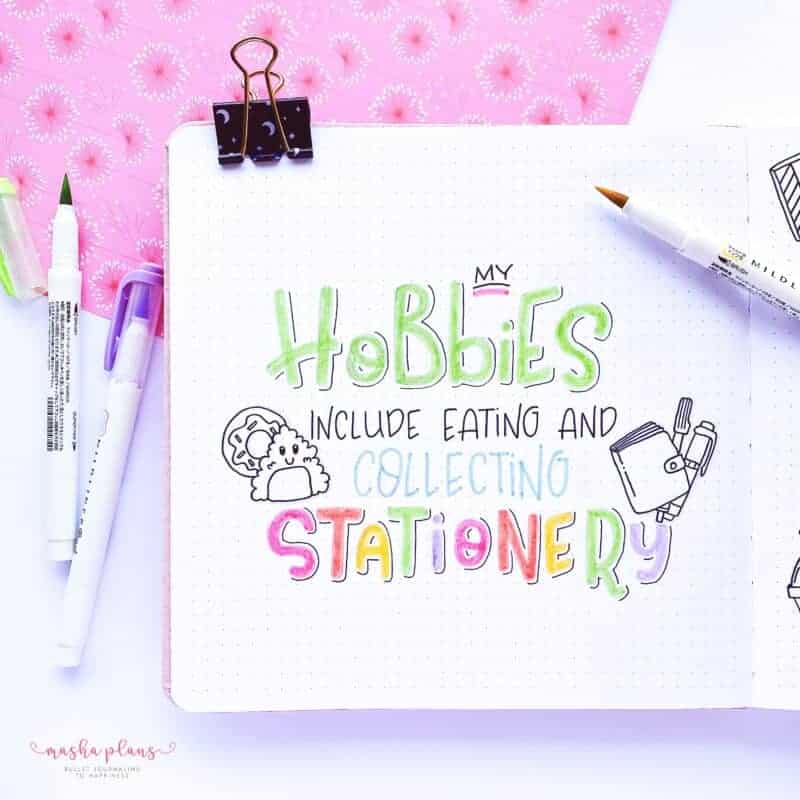 MY
HoBbiES
INCLUDE EATING AND
COLLECTING
STATiONERY
MILDL
masha plans
BULLET JOURNALING
TO HAPPINESS